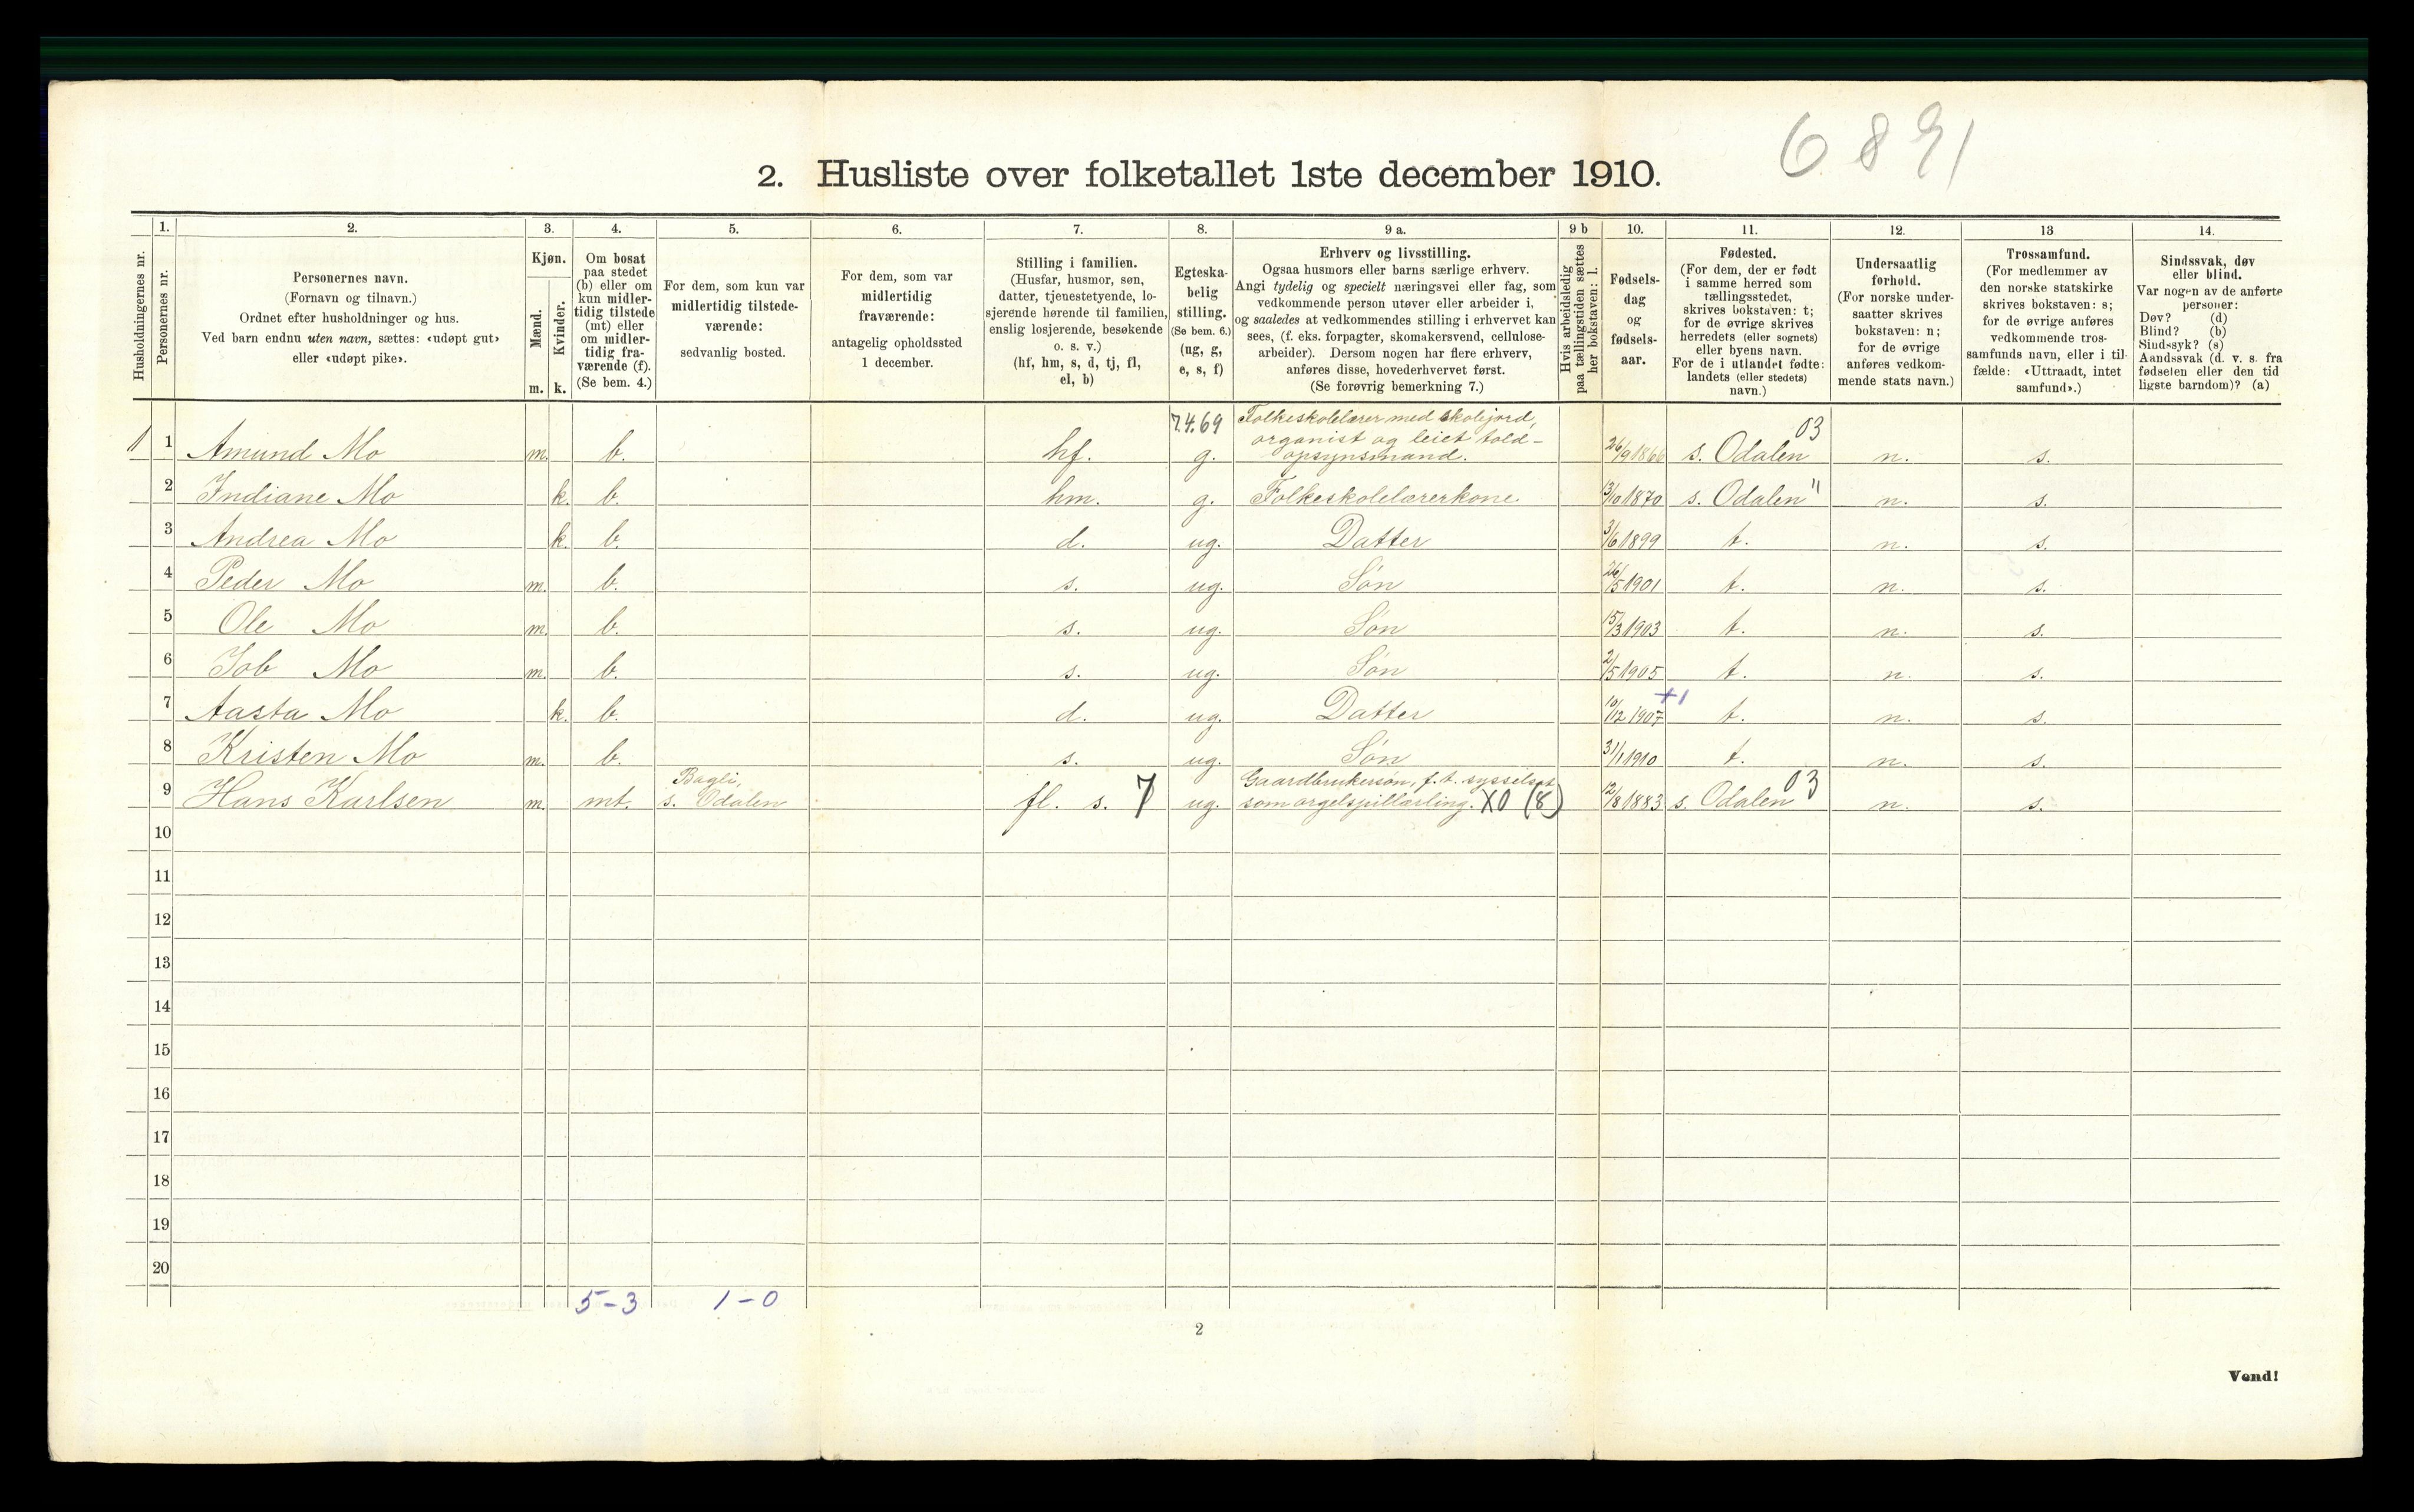 6891
2. Husliste over folketallet 1ste december 1910.
Husholdningernes nr.
1. Personernes nr.
2. Personernes navn.
(Fornavn og tilnavn.)
Ordnet efter husholdninger og hus.
Ved barn endnu uten navn, sættes: «udøpt gut»
eller «udøpt pike».
3. Kjøn.
Mænd. m.
Kvinder. k.
4. Om bosat
paa stedet
(b) eller om
kun midler-
tidig tilstede
(mt) eller
om midler-
tidig fra-
værende (f).
(Se bem. 4.)
5. For dem, som kun var
midlertidig tilstede-
værende:
sedvanlig bosted.
6. For dem, som var
midlertidig
fraværende:
antagelig opholdssted
1 december.
7. Stilling i familien.
(Husfar, husmor, søn,
datter, tjenestetyende, lo-
sjerende hørende til familien,
enslig losjerende, besøkende
o. s. v.)
(hf, hm, s, d, tj, fl,
el, b)
8. Egteska-
belig
stilling.
(Se bem. 6.)
(ug, g,
e, s, f)
9 a. Erhverv og livsstilling.
Ogsaa husmors eller barns særlige erhverv.
Angi tydelig og specielt næringsvei eller fag, som
vedkommende person utøver eller arbeider i,
og saaledes at vedkommendes stilling i erhvervet kan
sees, (f. eks. forpagter, skomakersvend, cellulose-
arbeider). Dersom nogen har flere erhverv,
anføres disse, hovederhvervet først.
(Se forøvrig bemerkning 7.)
9 b Hvis arbeidsledig
paa tællingstiden sættes
her bokstaven: l.
10. Fødsels-
dag
og
fødsels-
aar.
11. Fødested.
(For dem, der er født
i samme herred som
tællingsstedet,
skrives bokstaven: t;
for de øvrige skrives
herredets (eller sognets)
eller byens navn.
For de i utlandet fødte:
landets (eller stedets)
navn.)
12. Undersaatlig
forhold.
(For norske under-
saatter skrives
bokstaven: n;
for de øvrige
anføres vedkom-
mende stats navn.)
13 Trossamfund.
(For medlemmer av
den norske statskirke
skrives bokstaven: s;
for de øvrige anføres
vedkommende tros-
samfunds navn, eller i til-
fælde: «Uttraadt, intet
samfund».)
14. Sindssvak, døv
eller blind.
Var nogen av de anførte
personer:
Døv? (d)
Blind? (b)
Sindssyk? (s)
Aandssvak (d. v. s. fra
fødselen eller den tid
ligste barndom)? (a)
7.4.69 Folkeskolelærer med skolejord,
organist og leiet told- 03
1 1 Amund Mo m. b. hf. g. opsynsmand. 26/9 1866 s. Odalen n. s.
2 Indiane Mo k. b. hm. g. Folkeskolelærerkone 13/10 1870 s. Odalen " n. s.
3 Andrea Mo k. b. d. ug. Datter 3/6 1899 t. n. s.
4 Peder Mo m. b. s. ug. Søn 26/5 1901 t. n. s.
5 Ole Mo m. b. s. ug. Søn 15/3 1903 t. n. s.
6 Job Mo m. b. s. ug. Søn 2/5 1905 t. n. s.
+1
7 Aasta Mo k. b. d. ug. Datter 10/12 1907 t. n. s.
8 Kristen Mo m. b. s. ug. Søn 31/1 1910 t. n. s.
Bagli, Gaardbrukersøn, f.t. sysselsat 03
9 Hans Karlsen m. mt. s. Odalen fl. s. 7 ug. som orgelspillærling. X0 (8) 12/8 1883 s. Odalen n. s.
10
11
12
13
14
15
16
17
18
19
20
5-3 1-0
2
Vend!